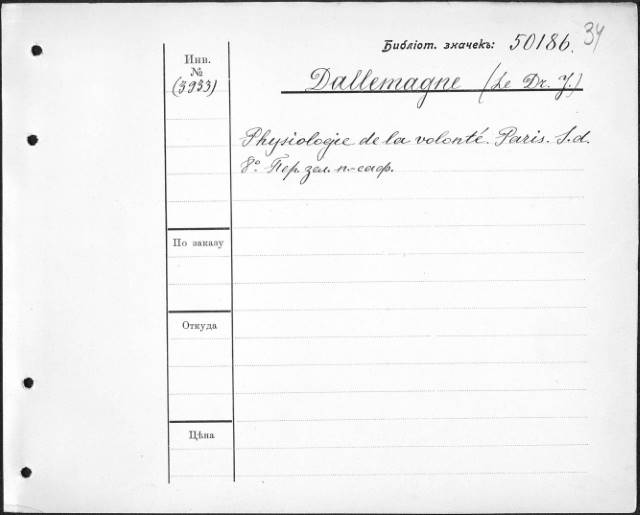 Библіот. значекъ: 50186. 34
Инв.
№
(3933)
Dallemagne (Le Dr. J.)
Physiologie de la volonté. Paris. S. d.
8°. Пер. зел. п.-саф.
По заказу
Откуда
Цѣна